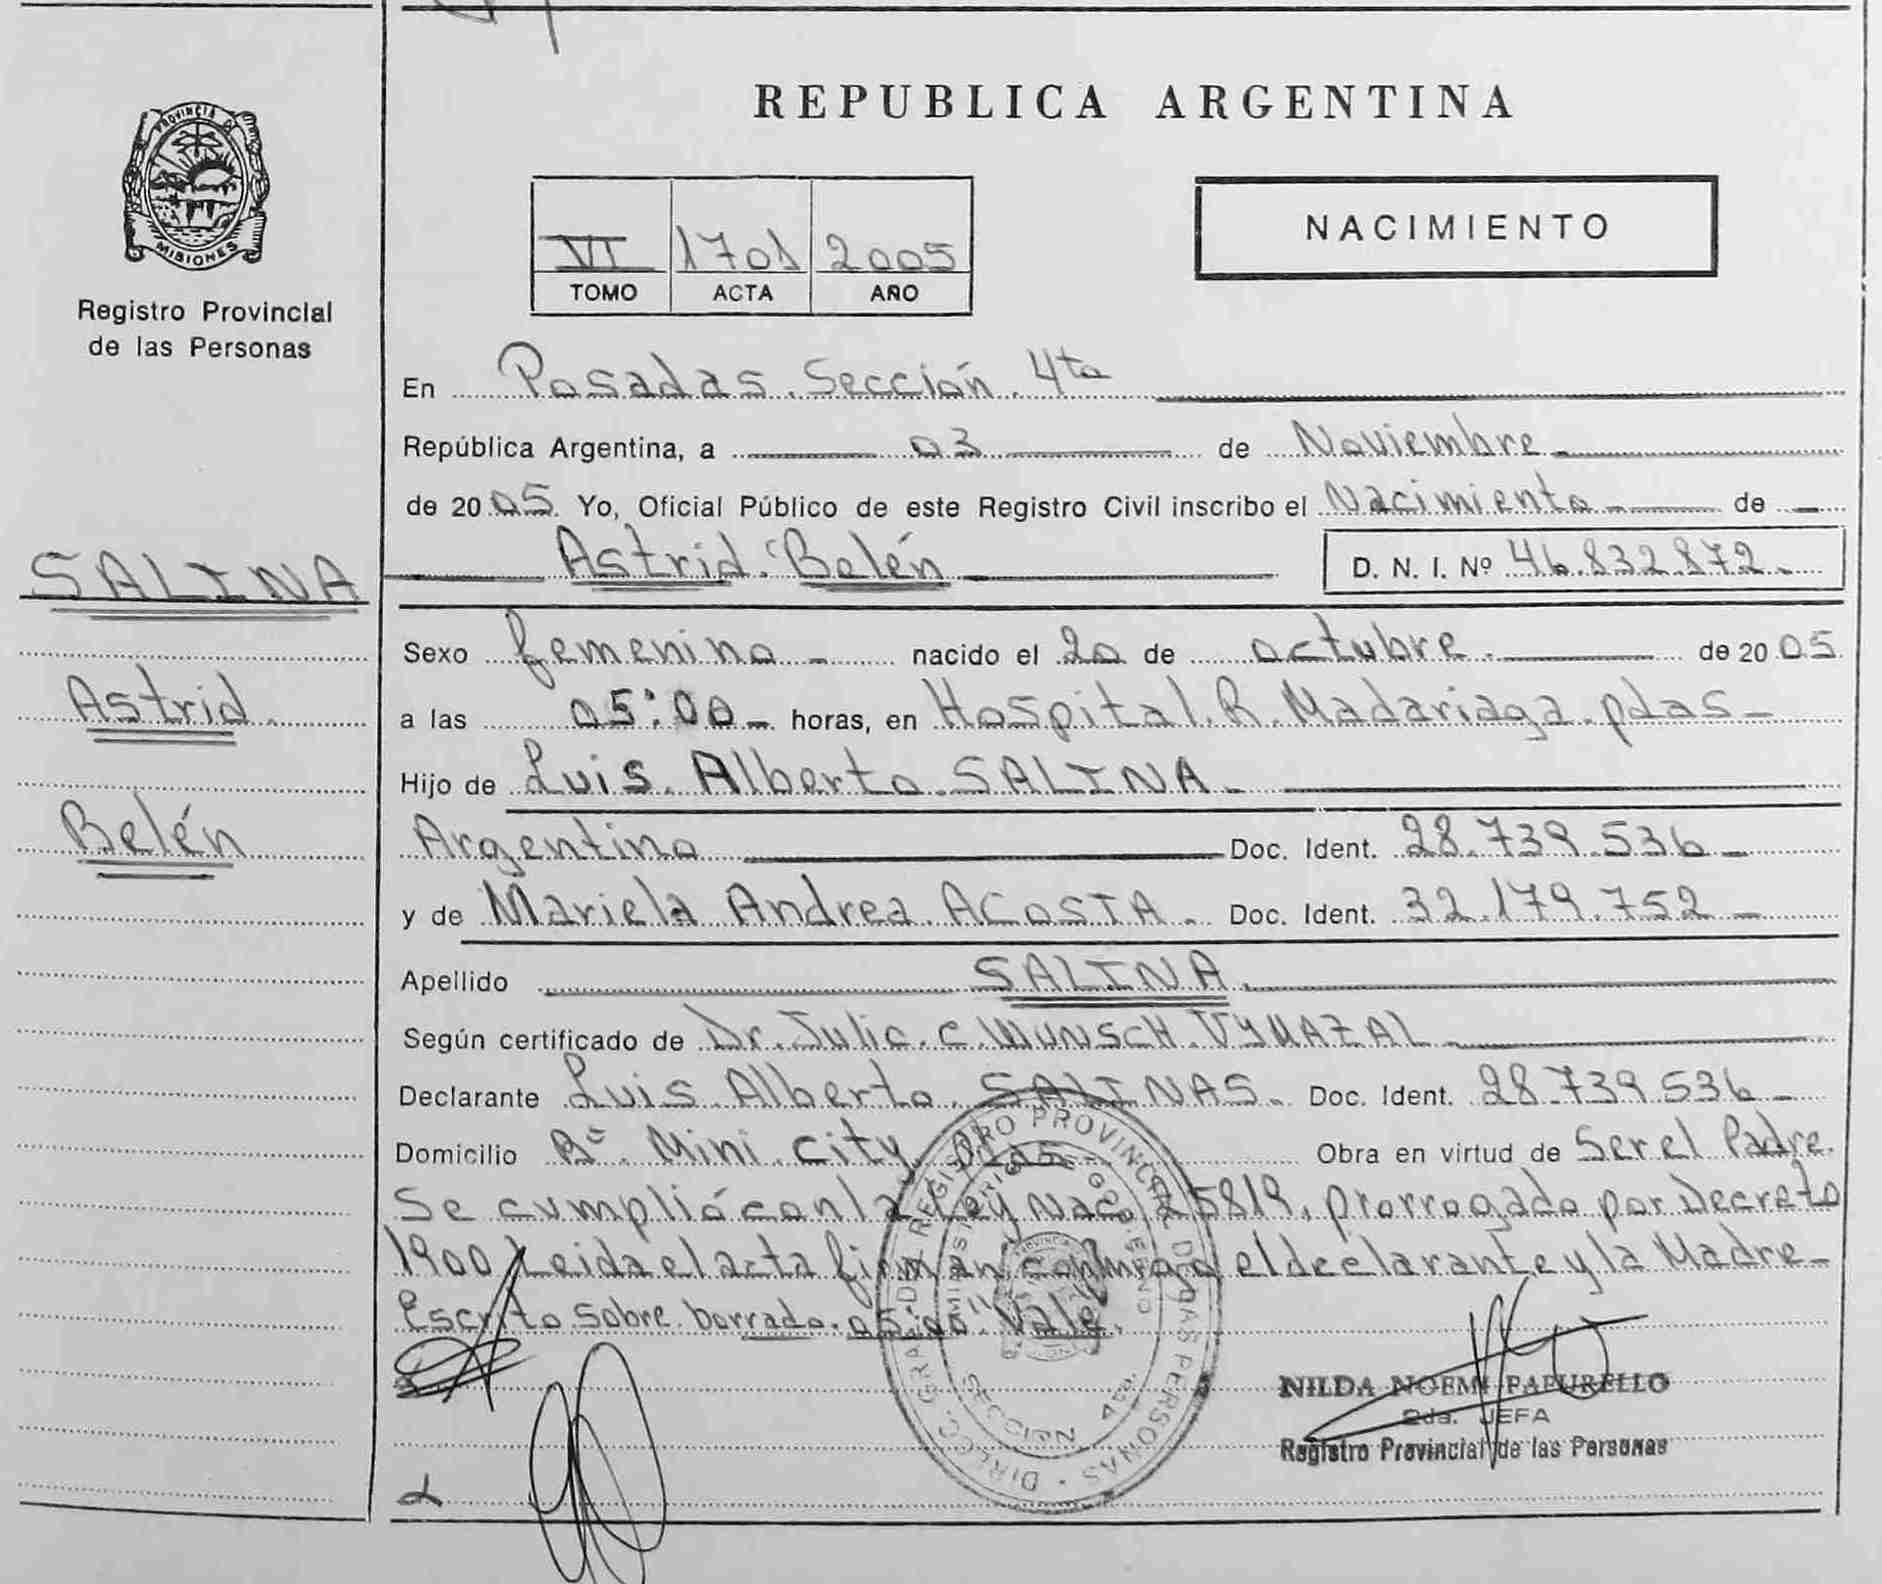 REPUBLICA ARGENTINA
PROVINCIA DE
MISIONES
Registro Provincial
de las Personas
VI 1701 2005
TOMO ACTA AÑO
NACIMIENTO
SALINA
Astrid
Belén
En Posadas. Sección. 4ta
República Argentina, a 03 de Noviembre
de 2005 Yo, Oficial Público de este Registro Civil inscribo el Nacimiento de
Astrid Belén D. N. I. Nº 46.832.872
Sexo femenino nacido el 20 de octubre de 2005
a las 05:00 horas, en Hospital. R. Madariaga. pdas
Hijo de Luis. Alberto. SALINA
Argentino Doc. Ident. 28.739.536
y de Mariela Andrea. ACOSTA Doc. Ident. 32.179.752
Apellido SALINA
Según certificado de Dr. Julio. C. WUNSCH. VYMAZAL
Declarante Luis Alberto. SALINAS Doc. Ident. 28.739.536
Domicilio Bº Mini City Pdas Obra en virtud de Ser el Padre.
Se cumplió con la Ley Nac. 25819, prorrogado por Decreto
1900 Leida el acta firman conmigo el declarante y la Madre
Escrito sobre borrado. 05:00" Vale.
DIRECC. GRAL. DEL REGISTRO PROVINCIAL DE LAS PERSONAS
MINISTERIO DE GOBIERNO
SECCION 4ta.
NILDA NOEMI PAPURELLO
2da. JEFA
Registro Provincial de las Personas